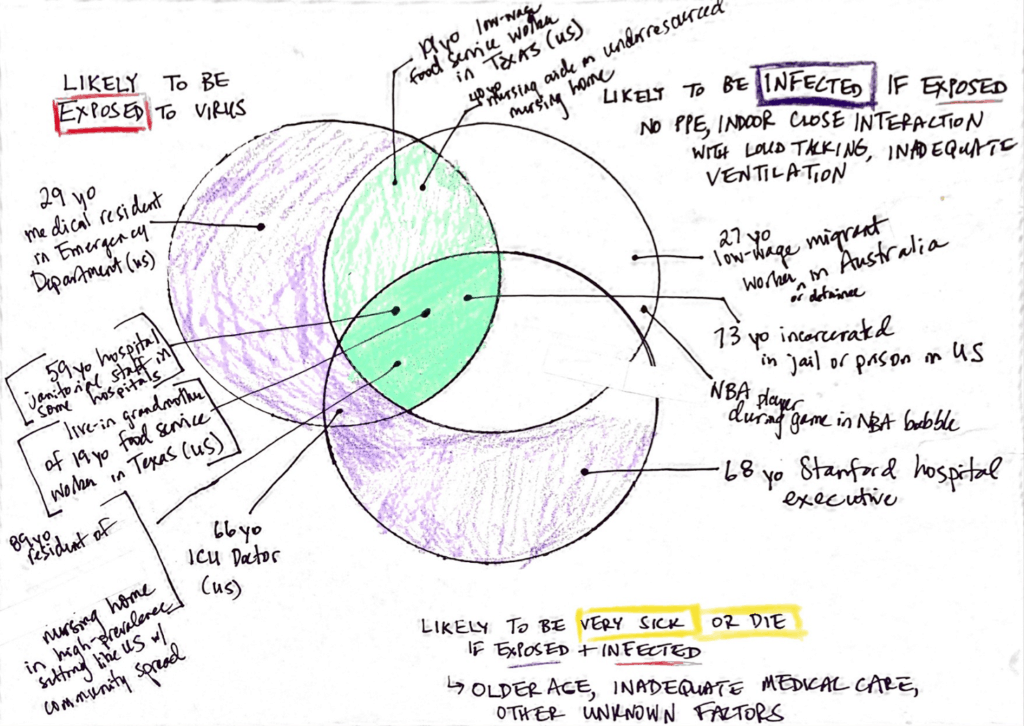 LIKELY TO BE
EXPOSED TO VIRUS
19 yo low-wage
food service worker
in Texas (US)
40 yo
nursing aide in underresourced
nursing home
LIKELY TO BE INFECTED IF EXPOSED
NO PPE, INDOOR CLOSE INTERACTION
WITH LOUD TALKING, INADEQUATE
VENTILATION
29 yo
medical resident
in Emergency
Department (US)
27 yo
low-wage migrant
worker in Australia
or detainee
73 yo incarcerated
in jail or prison in US
NBA player
during game in NBA bubble
68 yo Stanford hospital
executive
59 yo hospital
janitorial staff in
some hospitals
live-in grandmother
of 19 yo food service
worker in Texas (US)
89 yo
resident of
nursing home
in high-prevalence
setting like US w/
community spread
66 yo
ICU Doctor
(US)
LIKELY TO BE VERY SICK OR DIE
IF EXPOSED + INFECTED
↳ OLDER AGE, INADEQUATE MEDICAL CARE,
OTHER UNKNOWN FACTORS